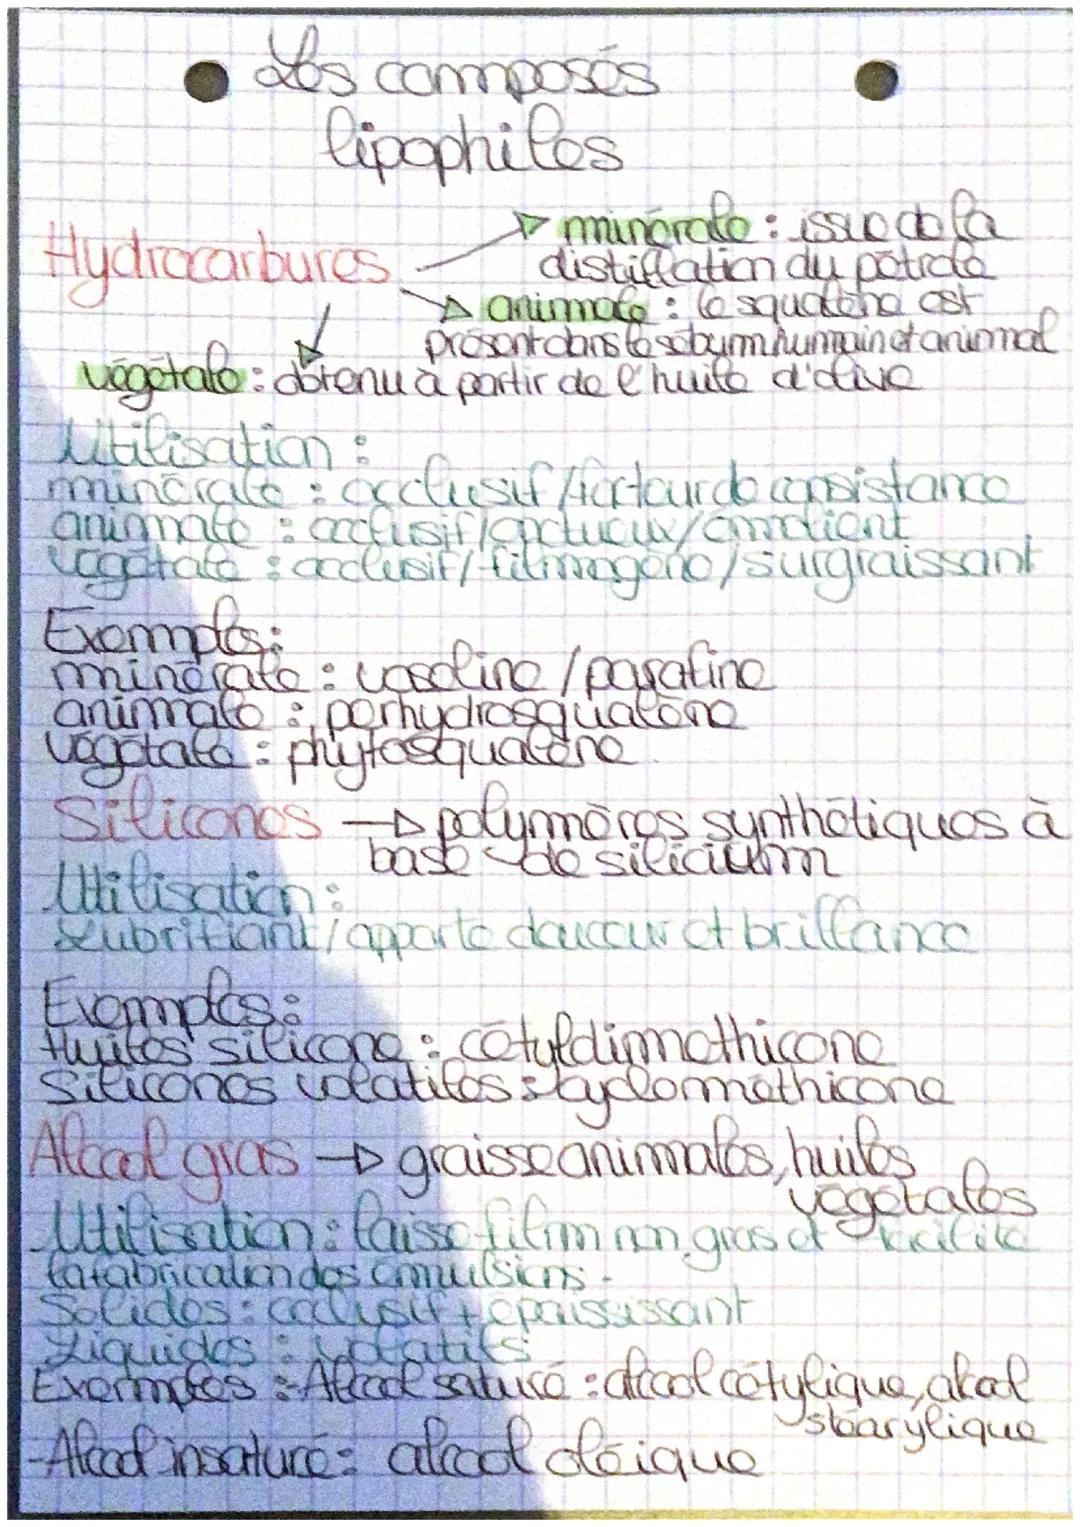 Les composés
lipophiles
Hydrocarbures
minérale : issue de la
distillation du pétrole
animale : le squalène est
présent dans le sébum humain et animal
végétale : obtenu à partir de l'huile d'olive
Utilisation :
minérale : occlusif / facteur de consistance
animale : occlusif / onctueux / émollient
végétale : occlusif / filmogène / surgraissant
Exemples :
minérale : vaseline / parafine
animale : perhydrosqualène
végétale : phytosqualène
Silicones → polymères synthétiques à
base de silicium
Utilisation :
Lubrifiant / apporte douceur et brillance
Exemples :
Huiles silicone : cétyldiméthicone
Silicones volatiles : cyclométhicone
Alcool gras → graisse animales, huiles
végétales
Utilisation : laisse film non gras et facilite
la fabrication des émulsions.
Solides : occlusif + épaississant
Liquides : volatils
Exemples : Alcool saturé : alcool cétylique, alcool
stéarylique
-Alcool insaturé : alcool oléique